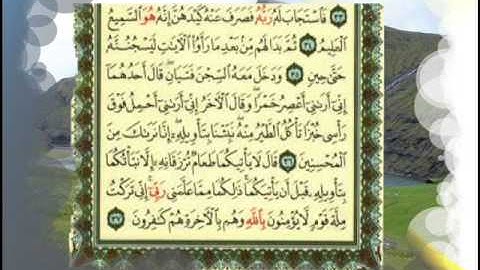 فَاسْتَجَابَ لَهُ رَبُّهُ فَصَرَفَ عَنْهُ كَيْدَهُنَّ إِنَّهُ هُوَ السَّمِيعُ
الْعَلِيمُ ٣٤ ثُمَّ بَدَا لَهُم مِّن بَعْدِ مَا رَأَوُا الْآيَاتِ لَيَسْجُنُنَّهُ
حَتَّىٰ حِينٍ ٣٥ وَدَخَلَ مَعَهُ السِّجْنَ فَتَيَانِ قَالَ أَحَدُهُمَا
إِنِّي أَرَانِي أَعْصِرُ خَمْرًا وَقَالَ الْآخَرُ إِنِّي أَرَانِي أَحْمِلُ فَوْقَ
رَأْسِي خُبْزًا تَأْكُلُ الطَّيْرُ مِنْهُ نَبِّئْنَا بِتَأْوِيلِهِ إِنَّا نَرَاكَ مِنَ
الْمُحْسِنِينَ ٣٦ قَالَ لَا يَأْتِيكُمَا طَعَامٌ تُرْزَقَانِهِ إِلَّا نَبَّأْتُكُمَا
بِتَأْوِيلِهِ قَبْلَ أَن يَأْتِيَكُمَا ذَٰلِكُمَا مِمَّا عَلَّمَنِي رَبِّي إِنِّي تَرَكْتُ
مِلَّةَ قَوْمٍ لَّا يُؤْمِنُونَ بِاللَّهِ وَهُم بِالْآخِرَةِ هُمْ كَافِرُونَ ٣٧